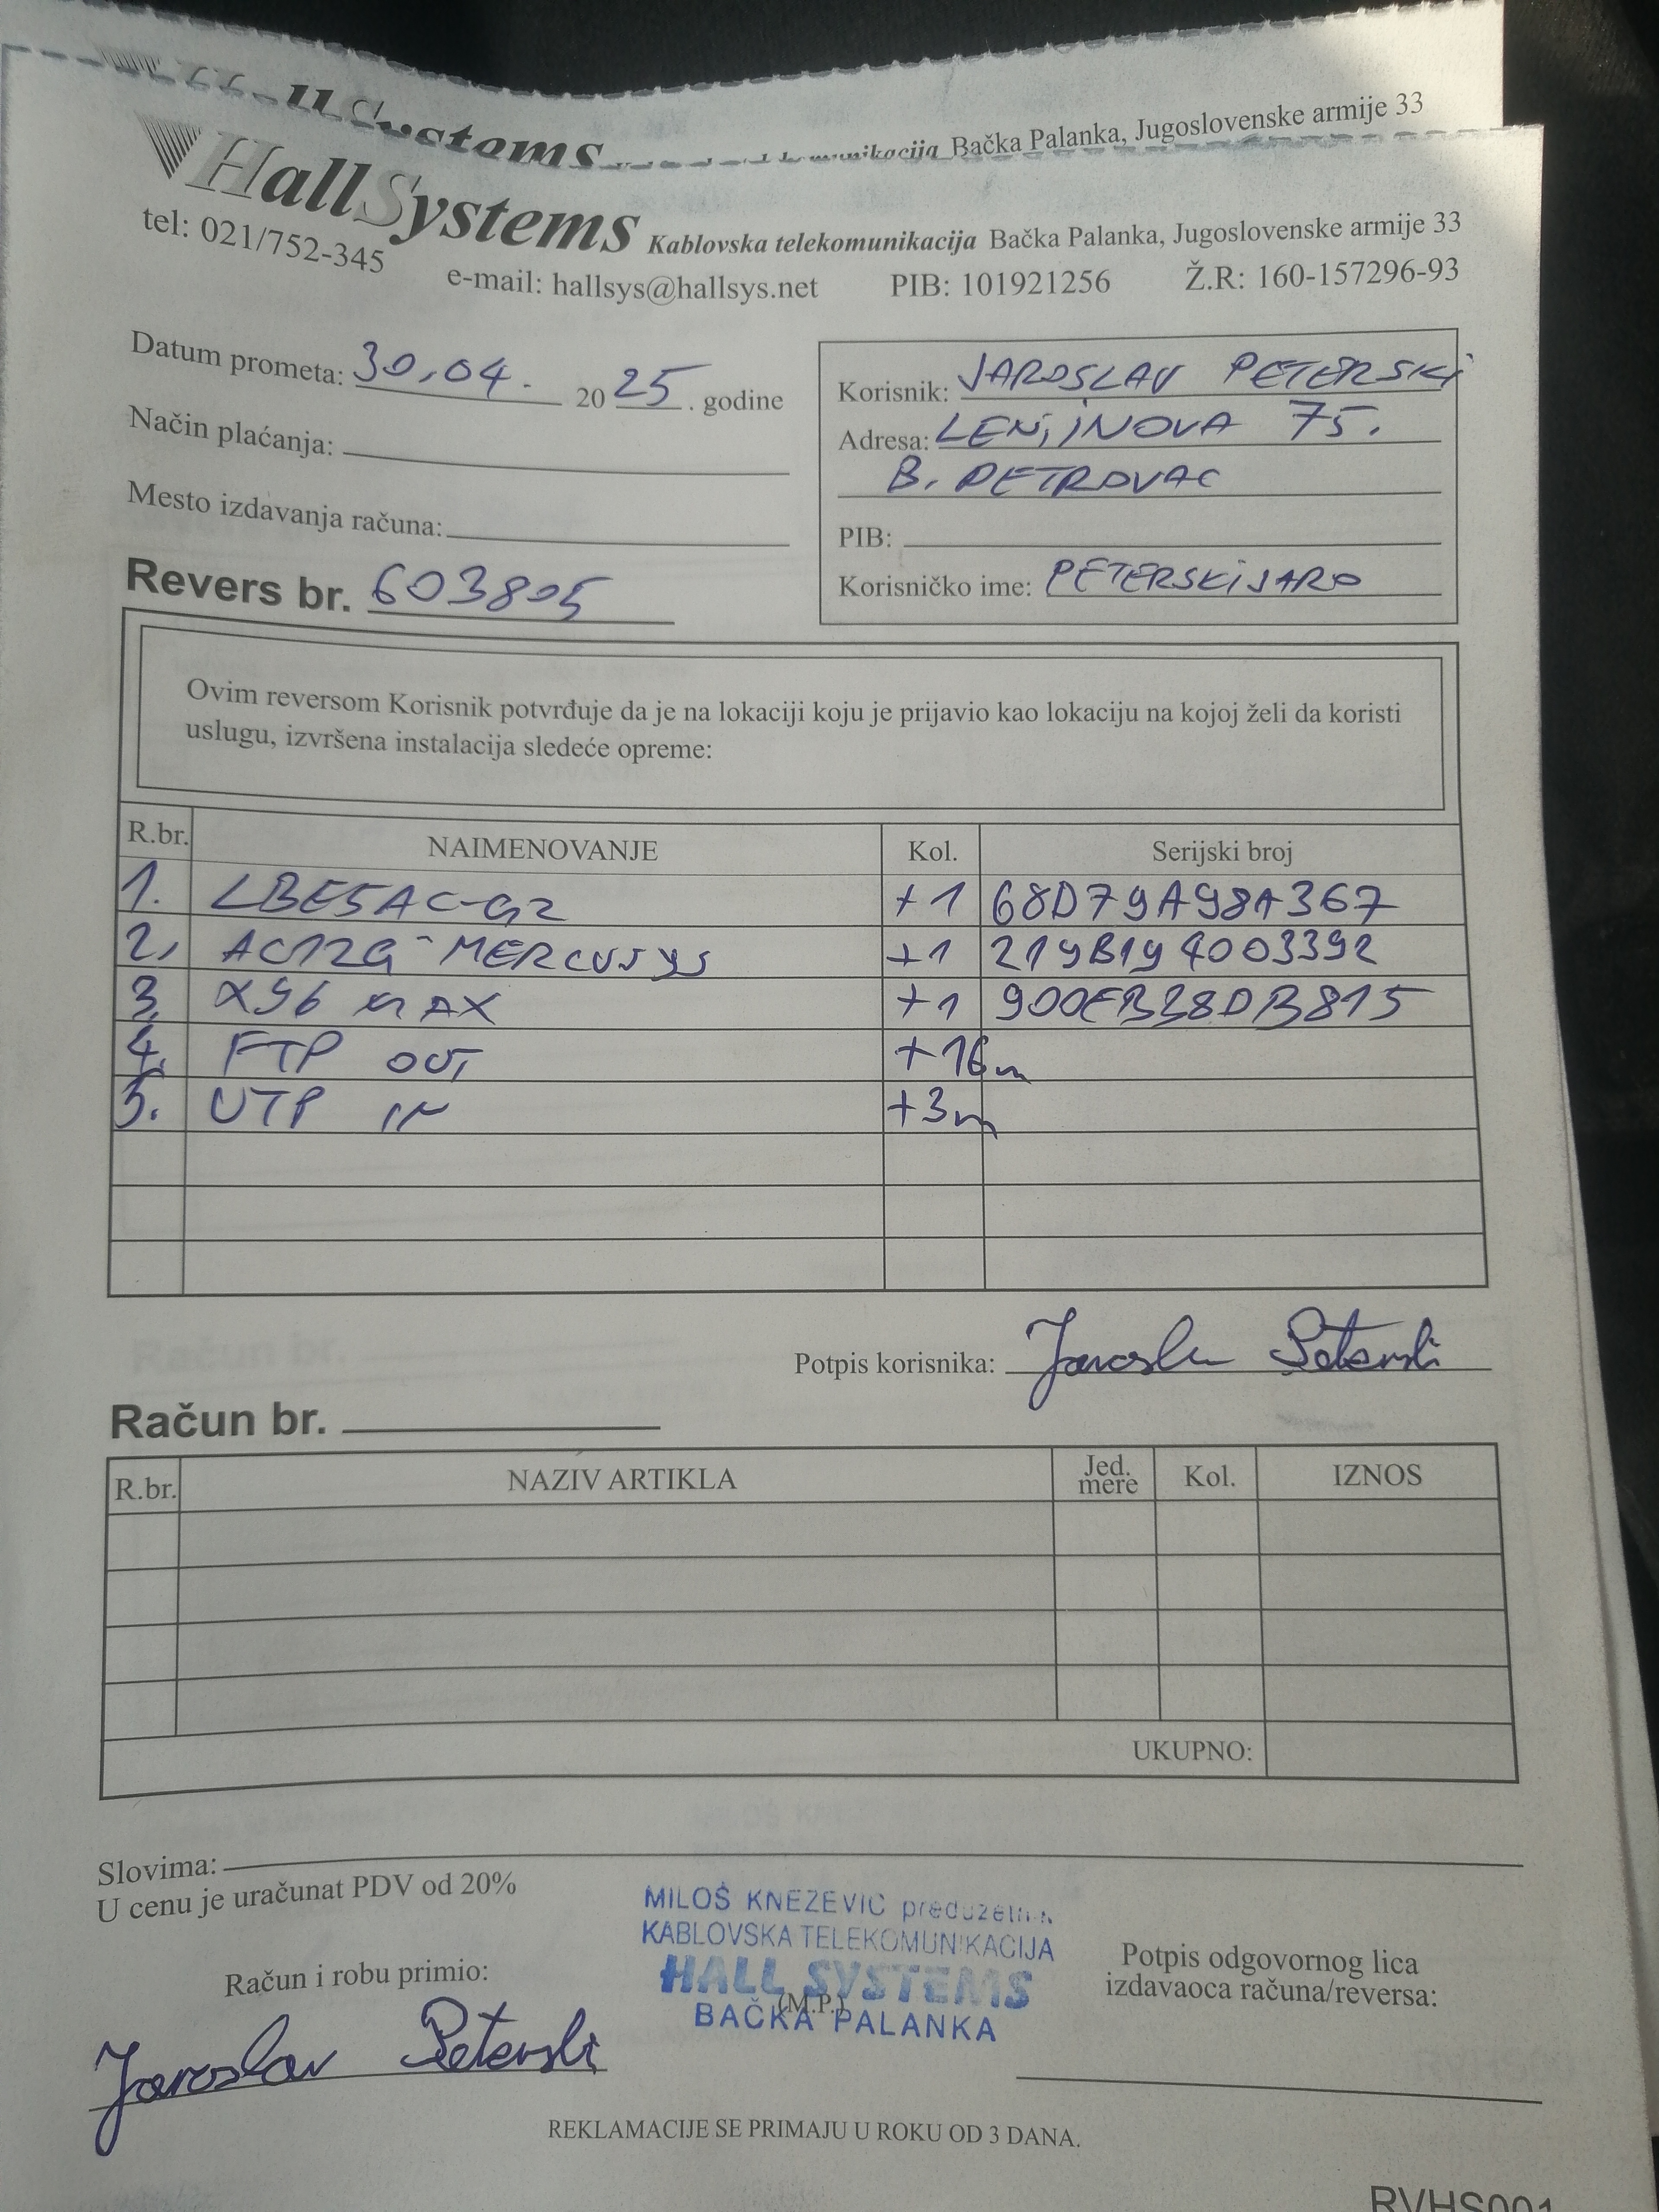 HallSystems Bačka Palanka, Jugoslovenske armije 33
HallSystems Kablovska telekomunikacija Bačka Palanka, Jugoslovenske armije 33
tel: 021/752-345 e-mail: hallsys@hallsys.net PIB: 101921256 Ž.R: 160-157296-93
Datum prometa: 30.04. 2025. godine
Način plaćanja:
Mesto izdavanja računa:
Revers br. 603805
Korisnik: JAROSLAV PETERSKI
Adresa: LENJINOVA 75.
B. PETROVAC
PIB:
Korisničko ime: PETERSKIJARO
Ovim reversom Korisnik potvrđuje da je na lokaciji koju je prijavio kao lokaciju na kojoj želi da koristi
uslugu, izvršena instalacija sledeće opreme:
R.br. NAIMENOVANJE Kol. Serijski broj
1. LBE5AC-G2 +1 68D79A98A367
2. AC12G-MERCUSYS +1 219B194003392
3. X96 MAX +1 900EB38DB815
4. FTP OUT +16m
5. UTP IN +3m
Potpis korisnika: Jaroslav Peterski
Račun br.
R.br. NAZIV ARTIKLA Jed. mere Kol. IZNOS
UKUPNO:
Slovima:
U cenu je uračunat PDV od 20%
MILOŠ KNEZEVIĆ preduzetnik
KABLOVSKA TELEKOMUNIKACIJA
HALL SYSTEMS
(M.P.)
BAČKA PALANKA
Račun i robu primio:
Jaroslav Peterski
Potpis odgovornog lica
izdavaoca računa/reversa:
REKLAMACIJE SE PRIMAJU U ROKU OD 3 DANA.
RVHS001